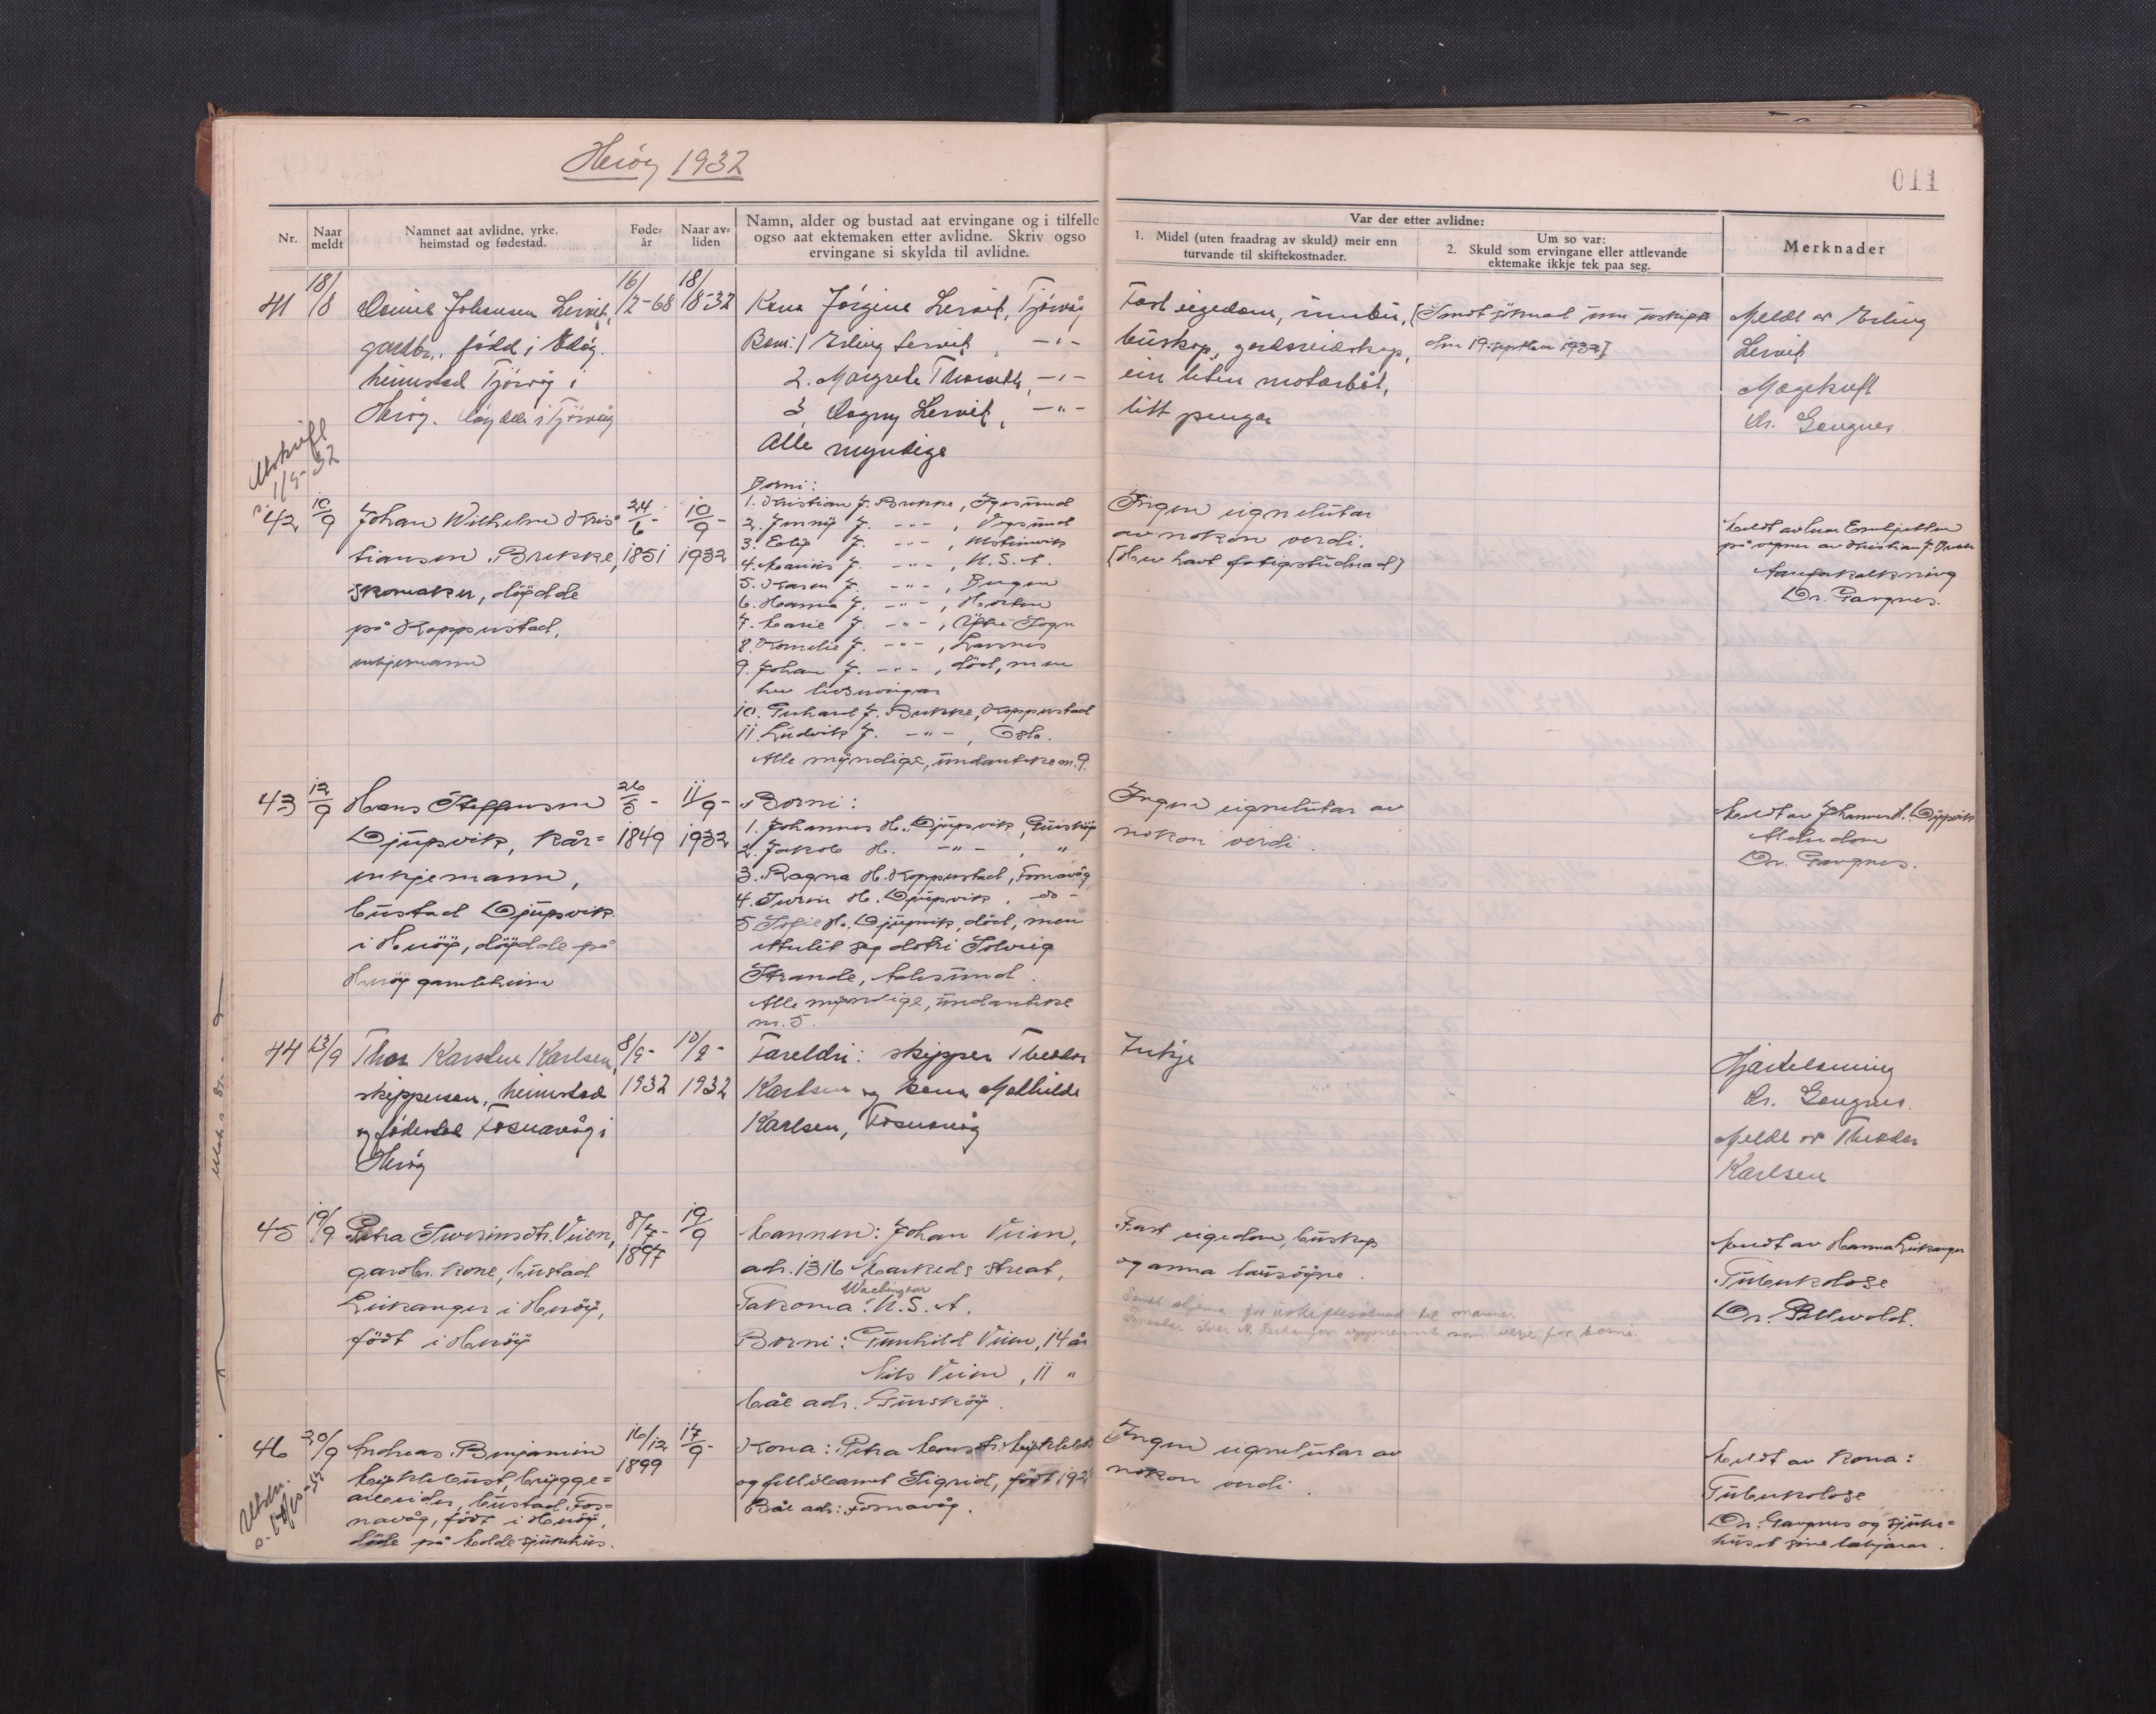 Herøy 1932
011
Nr.
Naar meldt
Namnet aat avlidne, yrke. heimstad og fødestad.
Føde-år
Naar av-liden
Namn, alder og bustad aat ervingane og i tilfelle ogso aat ektemaken etter avlidne. Skriv ogso ervingane si skylda til avlidne.
Var der etter avlidne:
1. Midel (uten fraadrag av skuld) meir enn turvande til skiftekostnader.
Um so var:
2. Skuld som ervingane eller attlevande ektemake ikkje tek paa seg.
Merknader
41
18/8
Johansen Lervik,
gardbr., född i
heimstad Tjörvåg i
Heröy. döydde i Tjörvåg
16/2-68
18/8-32
Kona Jörgine Lervik, Tjörvåg
Born: 1 Erling Lervik, -"-
2. Margrete -"-
3. Dagny Lervik, -"-
Alle myndige
Fast eigedom, innbu,
buskap, gardsreidskap,
ein liten motorbåt,
litt pengar
[Imot söknad um uskifte
den 19. septbr 1932]
Meldt av Erling
Lervik
Magekreft
Dr. Gangnes
42
10/9
Johan Wilhelm Kris-
tiansen Brekke,
skomaker, döydde
på Koppestad,
enkjemann
24/6-
1851
10/9-
1932
Borni:
1. Kristian J. Brekke, Igesund
2. Jenny J. -"-, Vegsund
3. J. -"-, Ulsteinvik
4. J. -"-, U.S.A.
5. Karen J. -"-, Bergen
6. Hanna J. -"-, Horten
7. Marie J. -"-, Ytre Sogn
8. Kornelie J. -"-,
9. Johan J. -"-, död, men
hev livservingar
10. Gerhard J. Brekke, Koppestad
11. Ludvik J. -"-, Oslo.
Alle myndige, undanteke nr. 9.
Ingen eignelutar
av nokon verdi.
[Hev havt fatigstudnad]
Meldt av
på vegner av Kristian J. Brekke
Aareforkalkning
Dr. Gangnes.
43
12/9
Hans Steffensen
Djupvik, kår-
enkjemann,
bustad Djupvik
i Heröy, döydde på
Heröy gamleheim
26/5-
1849
11/9-
1932
Borni:
1. Johannes H. Djupvik, Gurskøy
2. Jakob H. -"-, "
3. Ragna H. Koppestad, Fosnavåg
4. H. Djupvik, -do-
5. Sofie H. Djupvik, död, men
etterlét seg dotri Solveig
Strande, Aalesund.
Alle myndige, undanteke
nr. 5.
Ingen eignelutar av
nokon verdi.
Meldt av Johannes H. Djupvik
Alderdom
Dr. Gangnes.
44
13/9
Thor Karsten Karlsen,
skipperson, heimstad
og fødestad Fosnavåg i
Heröy
8/9-
1932
10/9-
1932
Foreldri: skipper Theodor
Karlsen og kona Mathilde
Karlsen, Fosnavåg
Inkje
Hjartelamning
Dr. Gangnes.
Meldt av Theodor
Karlsen
45
19/9
Petra Iversensdtr. Viem,
gardbr. kone, bustad
Leikanger i Heröy,
född i Heröy
8/7-
1897
19/9
Mannen: Johan Viem,
adr. 1316 Markeds streat,
Wachington
Takoma. U.S.A.
Borni: Gunhild Viem, 14 år
Nils Viem, 11 "
Båe adr. Gurskøy.
Fast eigedom, buskap
og anna lausöyre.
Sendt skjema for uskiftesöknad til mannen
Iver N. Leikanger uppnemnt som verje for borni.
Meldt av Hanna Leikanger
Tuberkolose
Dr.
46
20/9
Andreas Benjamin
Myklebust, brygge-
arbeider, bustad Fos-
navåg, född i Heröy,
döde på Molde sjukehus.
16/12
1899
17/9-
Kona: Petra Monsdtr. Myklebust
og fellesbarnet Sigrid, född 192
Båe adr: Fosnavåg.
Ingen eignelutar av
nokon verdi.
Meldt av kona:
Tuberkolose
Dr. Gangnes og sjuke-
huset sine lækjarar.